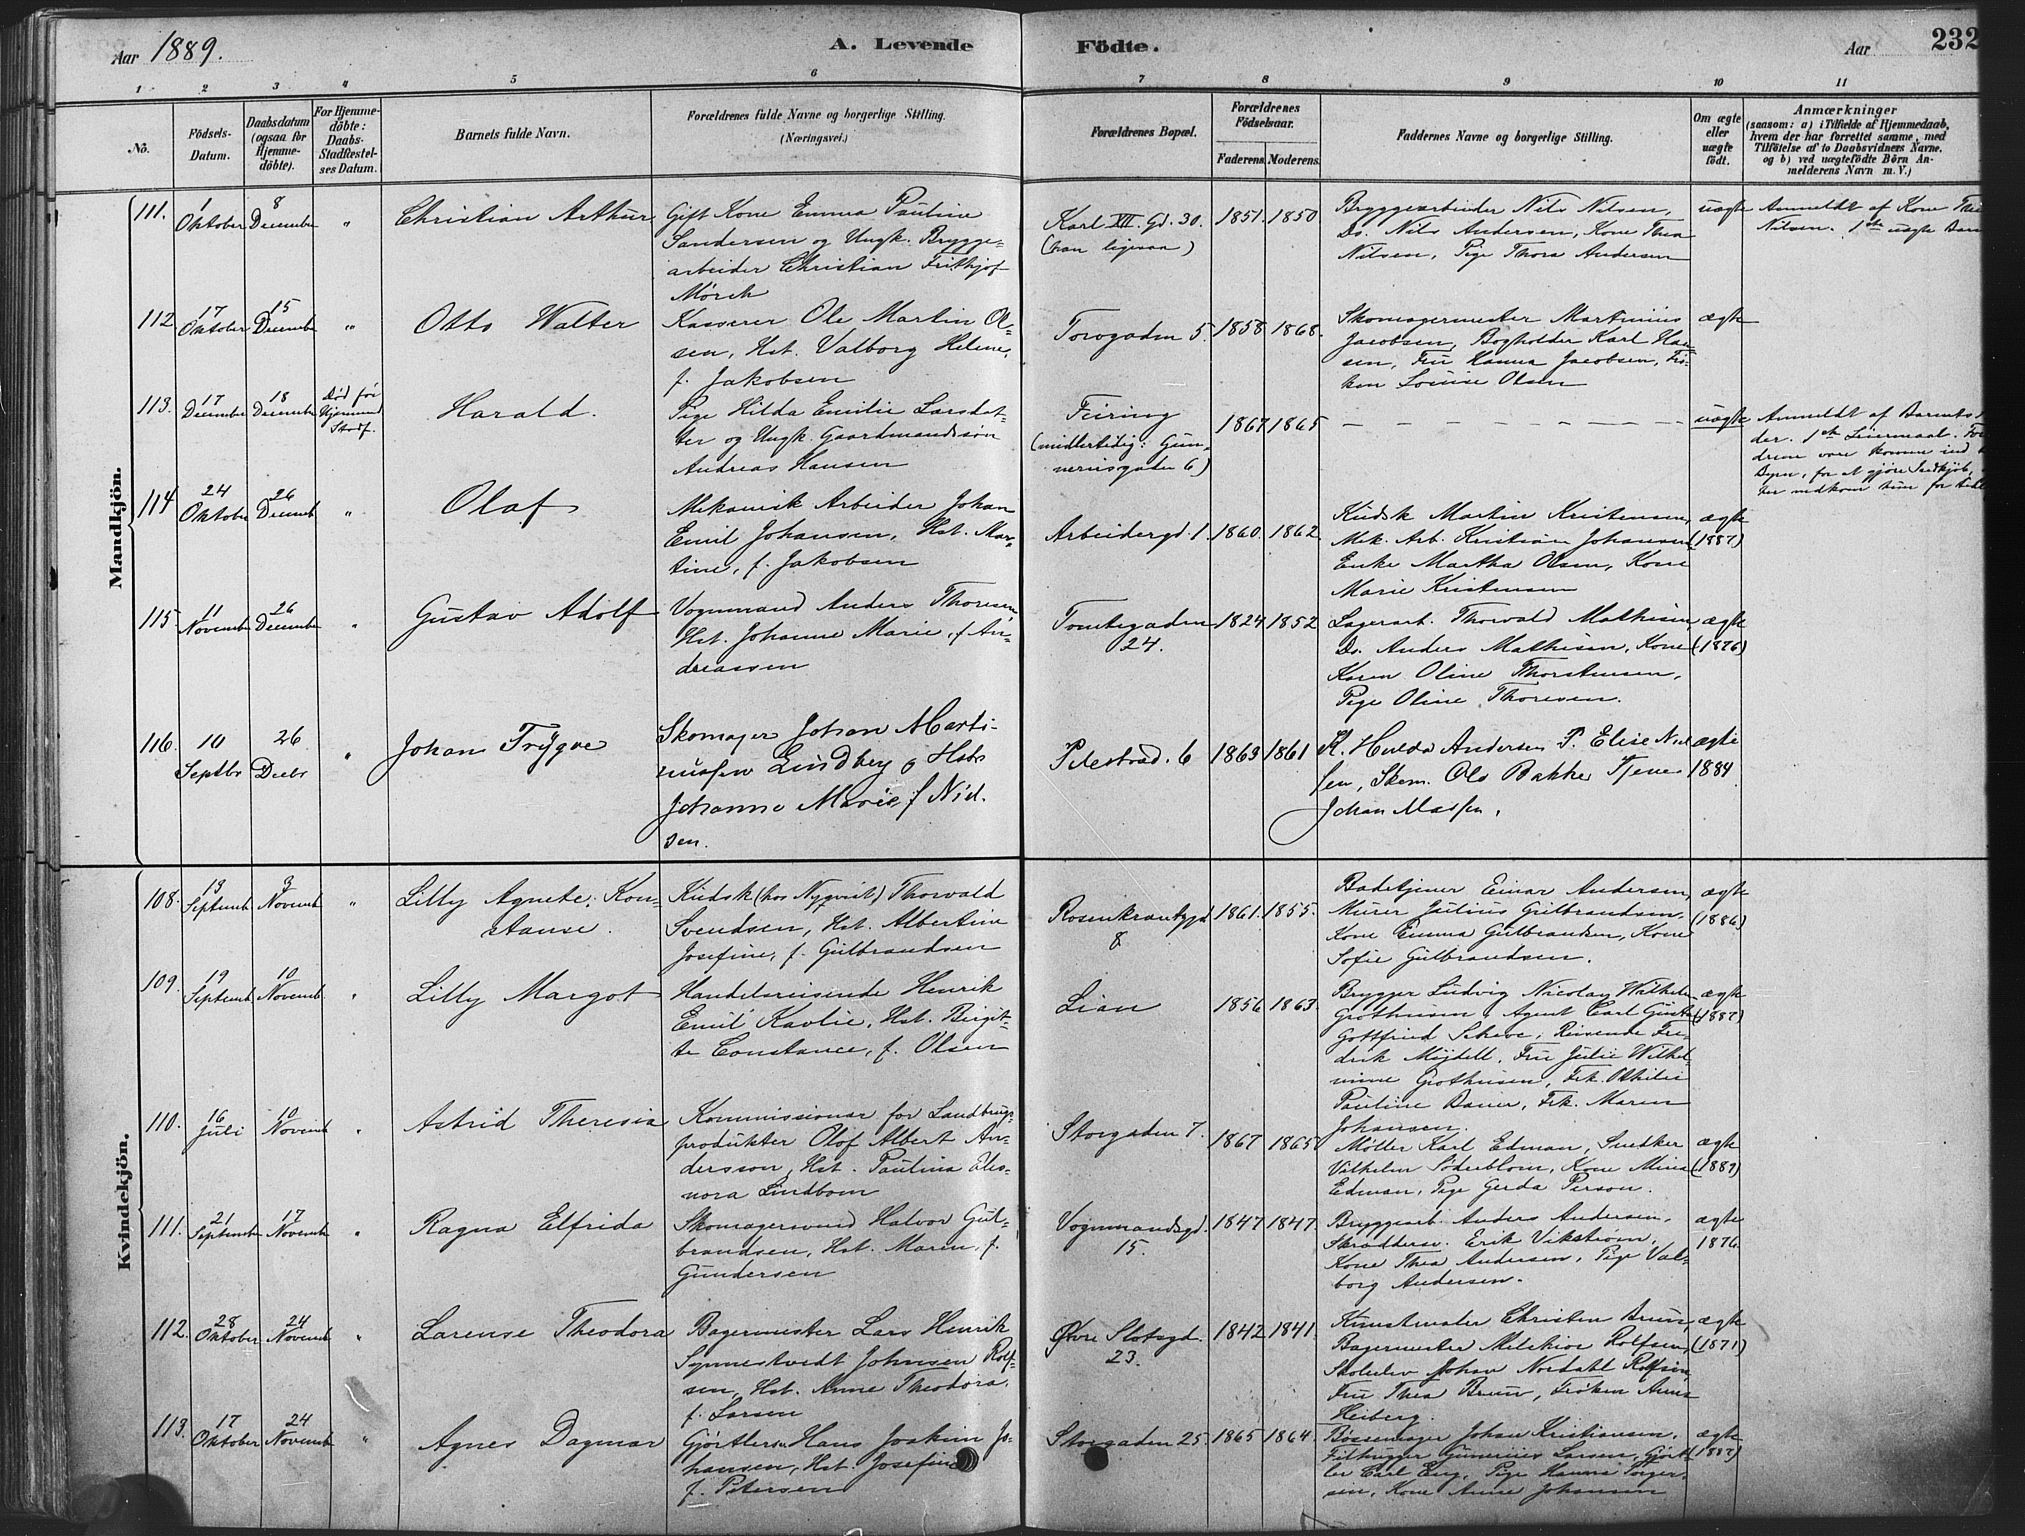 Aar 1889.
A. Levende Födte.
Aar
232
1 2 3 4 5 6 7 8 9 10 11
No.
Födsels-
Datum.
Daabsdatum
(ogsaa for
Hjemme-
döbte).
For Hjemme-
döbte:
Daabs-
Stadfæstel-
ses Datum.
Barnets fulde Navn.
Forældrenes fulde Navne og borgerlige Stilling.
(Næringsvei.)
Forældrenes Bopæl.
Forældrenes
Födselsaar.
Faderens. Moderens.
Faddernes Navne og borgerlige Stilling.
Om ægte
eller
uægte
födt.
Anmærkninger
(saasom: a) i Tilfælde af Hjemmedaab,
hvem der har forrettet samme, med
Tilföielse af to Daabsvidners Navne,
og b) ved uægtefödte Börn An-
melderens Navn m. V.)
Mandkjön.
111.
1
Oktober
8
December
"
Christian Arthur
Gift Kone Emma Pauline
Sandersen og Ungk. Brygge-
arbeider Christian Frithjof
Mørch
Karl XII Gd. 30.
(han ligesaa)
1851. 1850
Bryggearbeider Nils Nilsen,
Do. Nils Andersen, Kone Thea
Nilsen, Pige Thora Andersen
uægte
Anmeldt af Kone
Nilsen. 1ste uægte Barn
112
17
Oktober
15
December
"
Otto Walter
Kasserer Ole Martin Ol-
sen, Hst. Valborg Helene,
f. Jakobsen
Torvgaden 5.
1858 1868.
Skomagermester Martinius
Jacobsen, Bogholder Karl Han-
sen, Fru Hanna Jacobsen, Frø-
ken Louise Olsen
ægte
113.
17
December
18
December
Død før
Hjemmed.
Stadf.
Harald.
Pige Hilda Emilie Larsdat-
ter og Ungk. Gaardmandssøn
Andreas Hansen
Feiring
(midlertidig: Gun-
nerusgaden 6)
1867 1865
uægte
Anmeldt af Barnets
der. 1ste Leiermaal.
drene vare komne ind
Byen, for at gjøre Indkjøb,
114
24
Oktober
26
Decemb
"
Olaf
Mekanisk Arbeider Johan
Emil Johansen, Hst. Mar-
tine, f. Jakobsen
Arbeidergd. 1.
1860. 1862.
Kudsk Martin Kristensen,
Mek. Arb. Kristian Johansen
Enke Martha Olsen, Kone
Marie Kristensen
ægte
(1887)
115
11
November
26
December
"
Gustav Adolf
Vognmand Anders Thoresen
Hst. Johanne Marie, f. An-
dreassen
Tomtegaden
24.
1824 1852
Lagerarb. Thorvald Mathisen,
Do. Anders Mathisen, Kone
Karen Oline Thorstensen,
Pige Oline Thoresen.
ægte
(1876)
116.
10
Septbr
26
Decbr
"
Johan Trygve
Skomager Johan Marti-
niusen Lindberg og Hstr
Johanne Marie f Niel-
sen.
Pilestræd. 6
1863 1861
K. Hulda Andersen P. Elise Niel
sen, Skom. Ole Bakke Tjener
Johan Massen.
ægte
1884
Kvindekjön.
108.
13
Septemb
3
Novemb
"
Lilly Agnete, Kon-
stanse.
Kudsk (hos Nyqvist) Thorvald
Svendsen, Hst. Albertine
Josefine, f. Gulbrandsen
Rosenkrantzgd
8
1861. 1855.
Badetjener Einar Andersen,
Murer Julius Gulbrandsen.
Kone Emma Gulbrandsen, Kone
Sofie Gulbrandsen.
ægte
(1886)
109.
19
Septemb
10
Novemb
"
Lilly Margot
Handelsreisende Henrik
Emil Kavlie, Hst. Birgit-
te Constance, f. Olsen
Lian
1856 1863.
Brygger Ludvig Nicolay Wilhelm
Grothusen, Agent Carl Gustav
Gottfried Scheve, Reisende Fre-
drik Mydell, Fru Julie Wilhel-
mine Grothusen, Frk. Othilie
Pauline Bauer, Frk. Maren
Johansen.
ægte
(1887)
110.
16
Juli
10
Novemb
"
Astrid Theresia
Kommissionær for Landbrugs-
produkter Olof Albert An-
dersson, Hst. Paulina Eleo-
nora Lindbom
Storgaden 7.
1867 1865
Møller Karl Edman, Snedker
Vilhelm Söderblom, Kone Mina
Edman, Pige Gerda Person.
ægte
(1889)
111.
21
September
17
Novemb
"
Ragna Elfrida
Skomagersvend Halvor Gul-
brandsen, Hst. Maren, f.
Gundersen
Vognmandsgd.
15.
1847 1847
Bryggearb. Anders Andersen,
Skræddersv. Erik Vikstrøm,
Kone Thea Andersen, Pige Val-
borg Andersen.
ægte
1876.
112.
28
Oktober
24
Novemb
"
Larense Theodora
Bagermester Lars Henrik
Synnestvedt Johnsen Rolf-
sen, Hst. Anne Theodora,
f. Larsen
Øvre Slotsgd.
23.
1842 1841.
Kunstmaler Christen Brun,
Bagermester Melchior Rolfsen,
Skoleelev Johan Nordahl Rolfsen,
Fru Thea Bruun, Frøken Anna
Heiberg.
ægte
(1871)
113.
17
Oktober
24
Novemb
"
Agnes Dagmar
Gjørtlersv. Hans Joakim Jo-
hansen, Hst. Josefine
f. Petersen
Storgaden 25
1865 1864.
Bøssemager Johan Kristiansen,
Filhugger Gunerius Larsen, Gjørt-
ler Carl Eng, Pige Hanna Torger-
sen, Kone Anne Johansen
ægte
(1887)